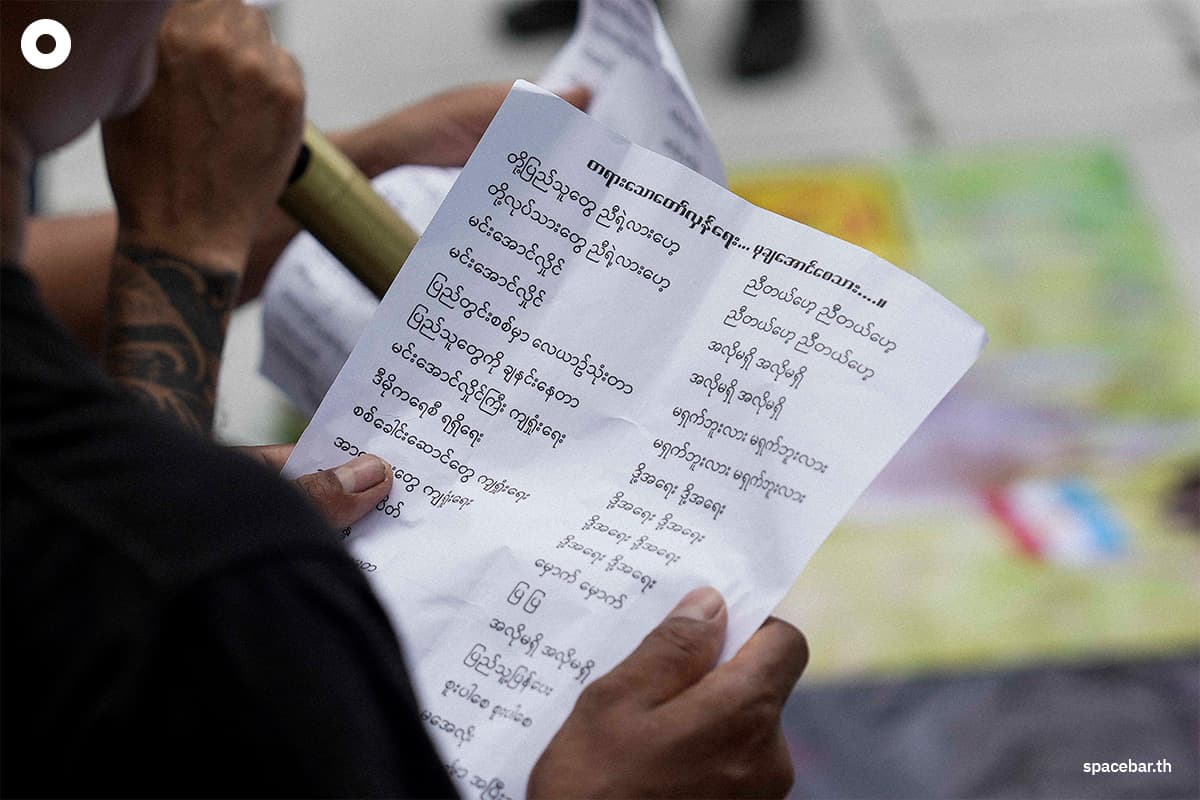 တရားသောတော်လှန်ရေး... မုချအောင်စေသား....။
တို့ပြည်သူတွေ ညီရဲ့လားဟေ့
တို့လုပ်သားတွေ ညီရဲ့လားဟေ့
မင်းအောင်လှိုင်
မင်းအောင်လှိုင်
ပြည်တွင်းစစ်မှာ လေယာဉ်သုံးတာ
ပြည်သူတွေကို ချနင်းနေတာ
မင်းအောင်လှိုင်ကြီး ကျရှုံးရေး
ဒီမိုကရေစီ ရရှိရေး
စစ်ခေါင်းဆောင်တွေ ကျရှုံးရေး
ကျရှုံးရေး
ညီတယ်ဟေ့ ညီတယ်ဟေ့
ညီတယ်ဟေ့ ညီတယ်ဟေ့
အလိုမရှိ အလိုမရှိ
အလိုမရှိ အလိုမရှိ
မရှက်ဘူးလား မရှက်ဘူးလား
မရှက်ဘူးလား မရှက်ဘူးလား
ဒို့အရေး ဒို့အရေး
ဒို့အရေး ဒို့အရေး
ဒို့အရေး ဒို့အရေး
ဒို့အရေး ဒို့အရေး
မှောက် မှောက်
အလိုမရှိ အလိုမရှိ
ပြည်သူ့ပြန်ပေး
စူးပါစေ စူးပါစေ
မအေလိုး
spacebar.th